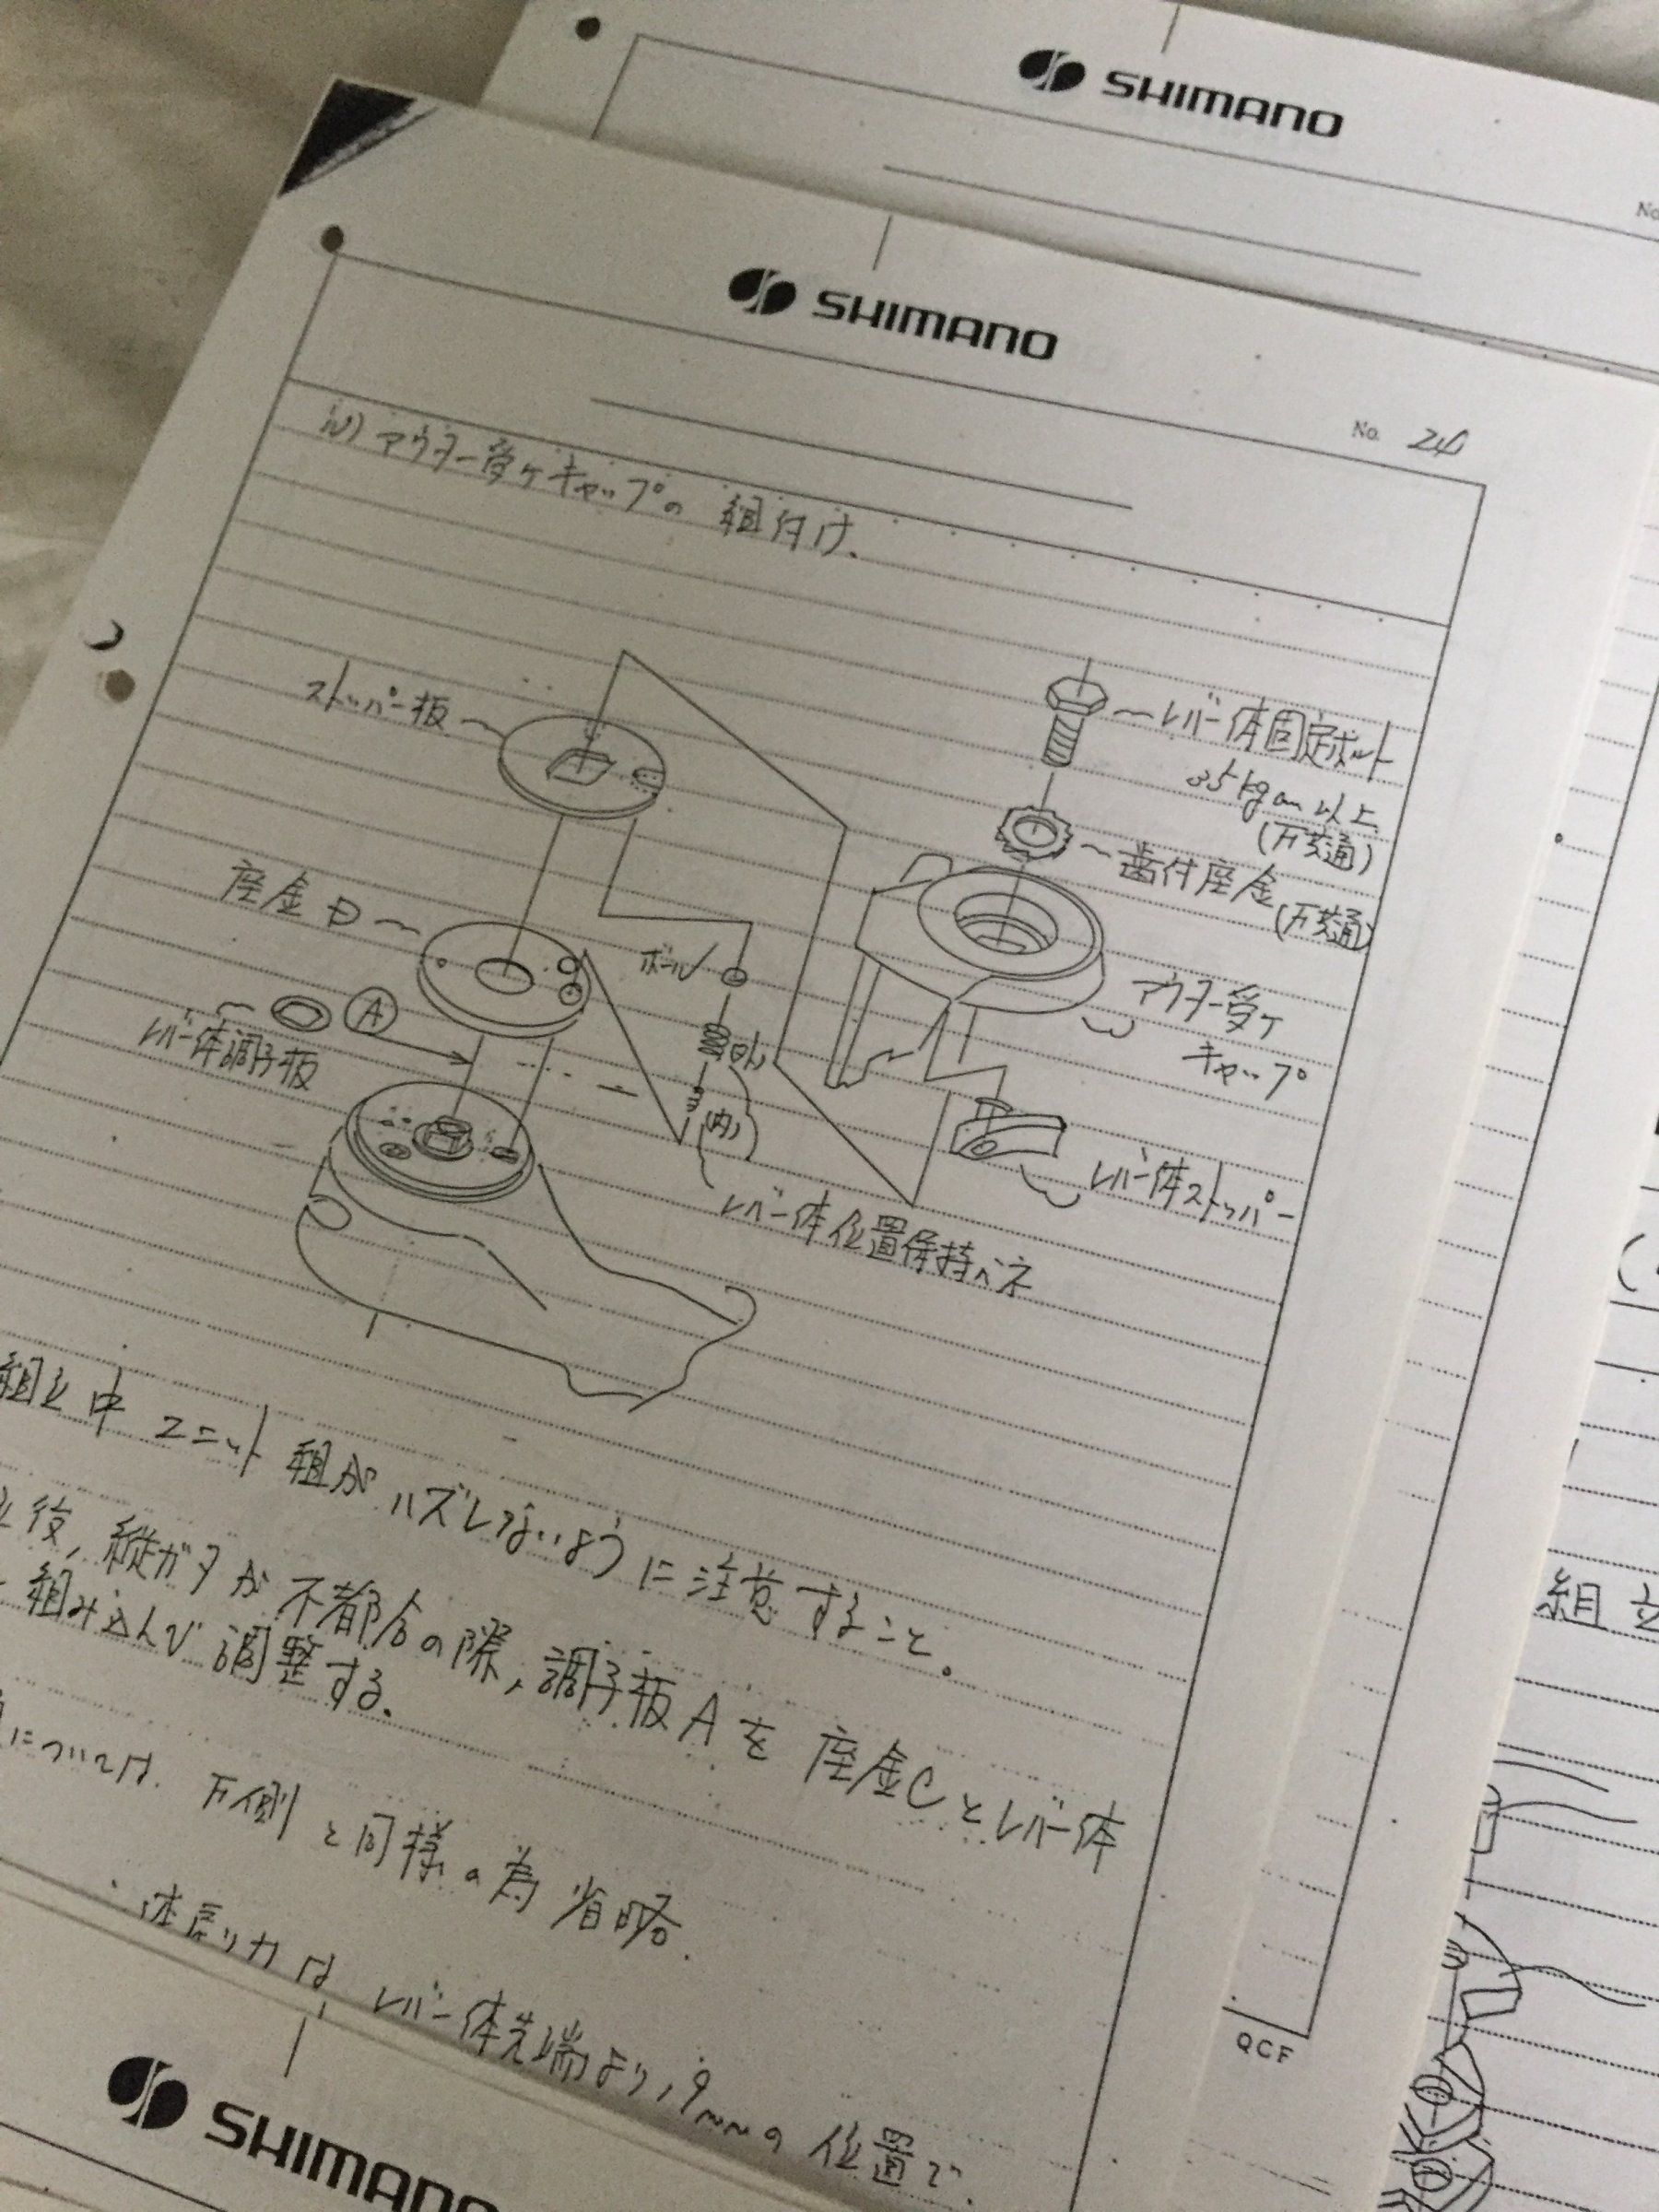 SHIMANO
No
SHIMANO
No. 24
iv) アウター受ケキャップの 組付け.
ストッパー板
レバー体固定ボルト
35kgcm以上
(万共通)
歯付座金
(万共通)
座金D
ボール
アウター受ケ
キャップ
A
レバー体調子板
(外)
(内)
レバー体ストッパー
レバー体位置保持バネ
組立中 ユニット組が ハズレないように注意すること。
後, 縦ガタが不都合の際, 調子板Aを 座金Cとレバー体
組み込んで調整する.
については. 万側と同様の為 省略.
体戻り力は レバー体先端より, 9mmの位置で.
QCF
組立
SHIMANO